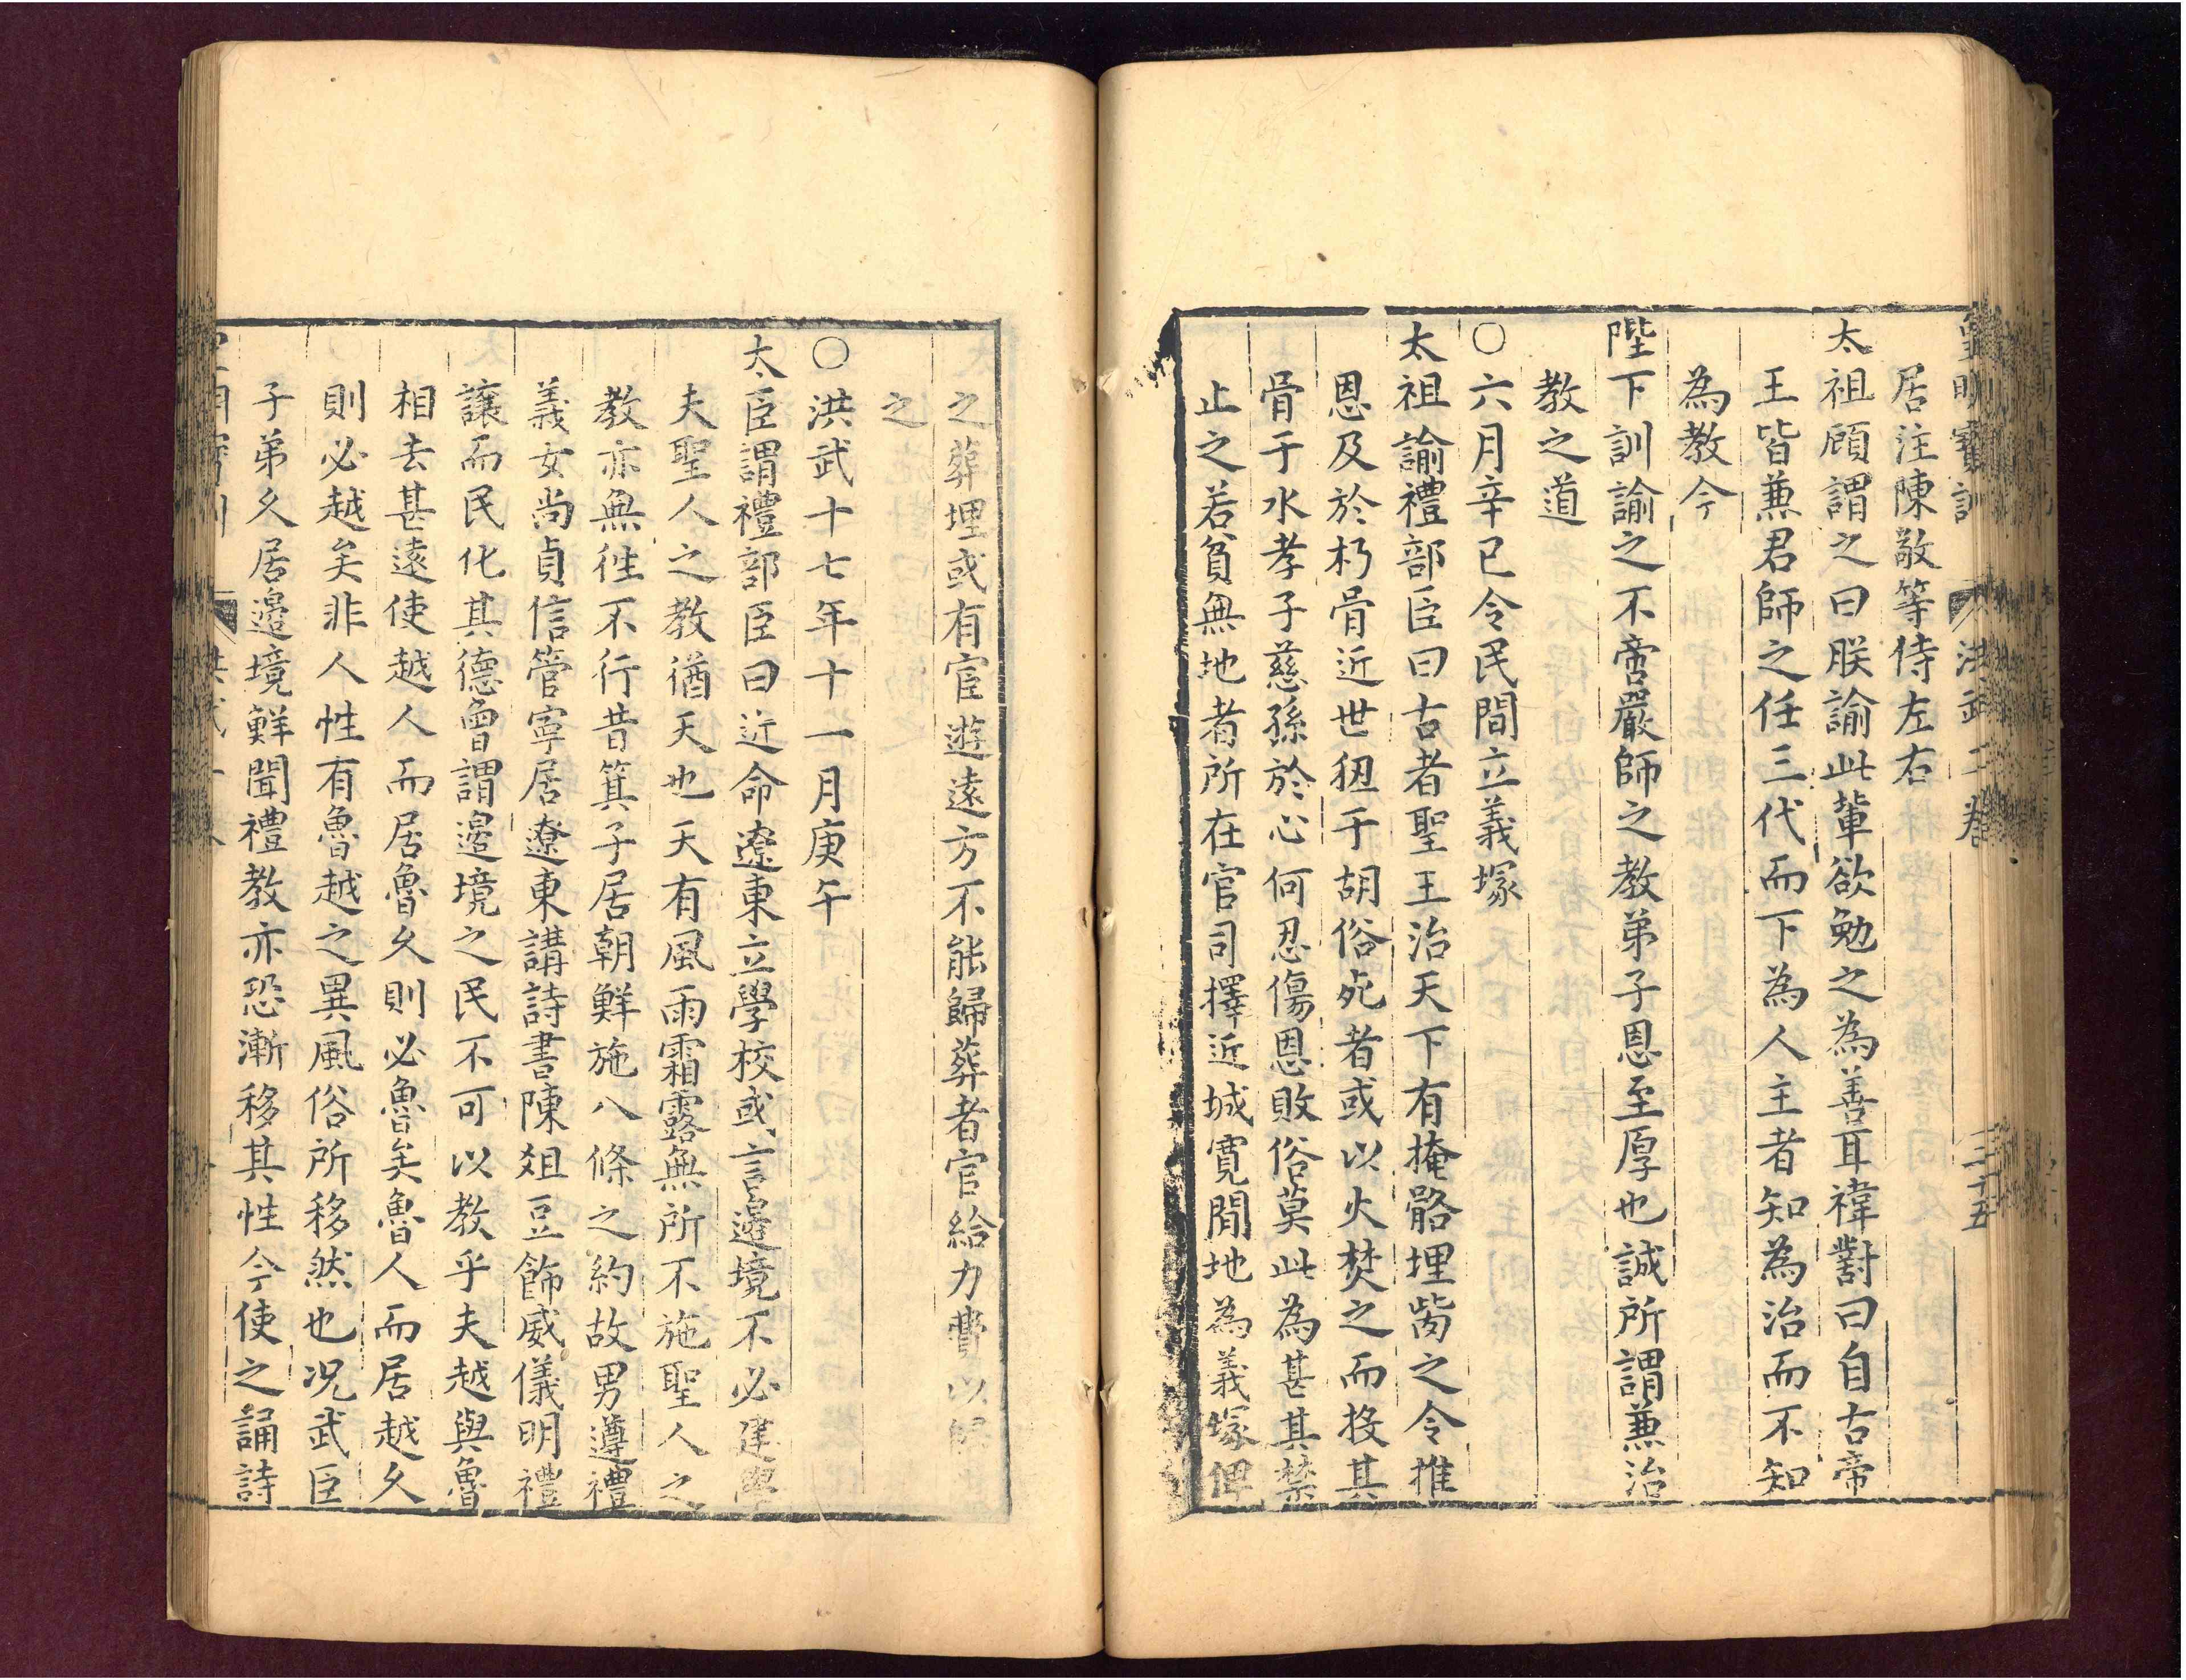 皇明寳訓 洪武二卷 三十五
居注陳敬等侍左右
太祖顧謂之曰朕諭此輩欲勉之為善耳禕對曰自古帝
王皆兼君師之任三代而下為人主者知為治而不知
為教今
陛下訓諭之不啻嚴師之教弟子恩至厚也誠所謂兼治
教之道
○六月辛巳令民間立義塚
太祖諭禮部臣曰古者聖王治天下有掩骼埋胔之令推
恩及於朽骨近世狃于胡俗死者或以火焚之而投其
骨于水孝子慈孫於心何忍傷恩敗俗莫此為甚其禁
止之若貧無地者所在官司擇近城寬閒地為義塚俾
之葬埋或有宦遊遠方不能歸葬者官給力費以歸
之
○洪武十七年十一月庚午
太臣謂禮部臣曰近命遼東立學校或言邊境不必建學
夫聖人之教猶天也天有風雨霜露無所不施聖人之
教亦無徃不行昔箕子居朝鮮施八條之約故男遵禮
義女尚貞信管寧居遼東講詩書陳爼豆飾威儀明禮
讓而民化其德曾謂邊境之民不可以教乎夫越與魯
相去甚遠使越人而居魯久則必魯矣魯人而居越久
則必越矣非人性有魯越之異風俗所移然也况武臣
子弟久居邉境鮮聞禮教亦恐漸移其性今使之誦詩